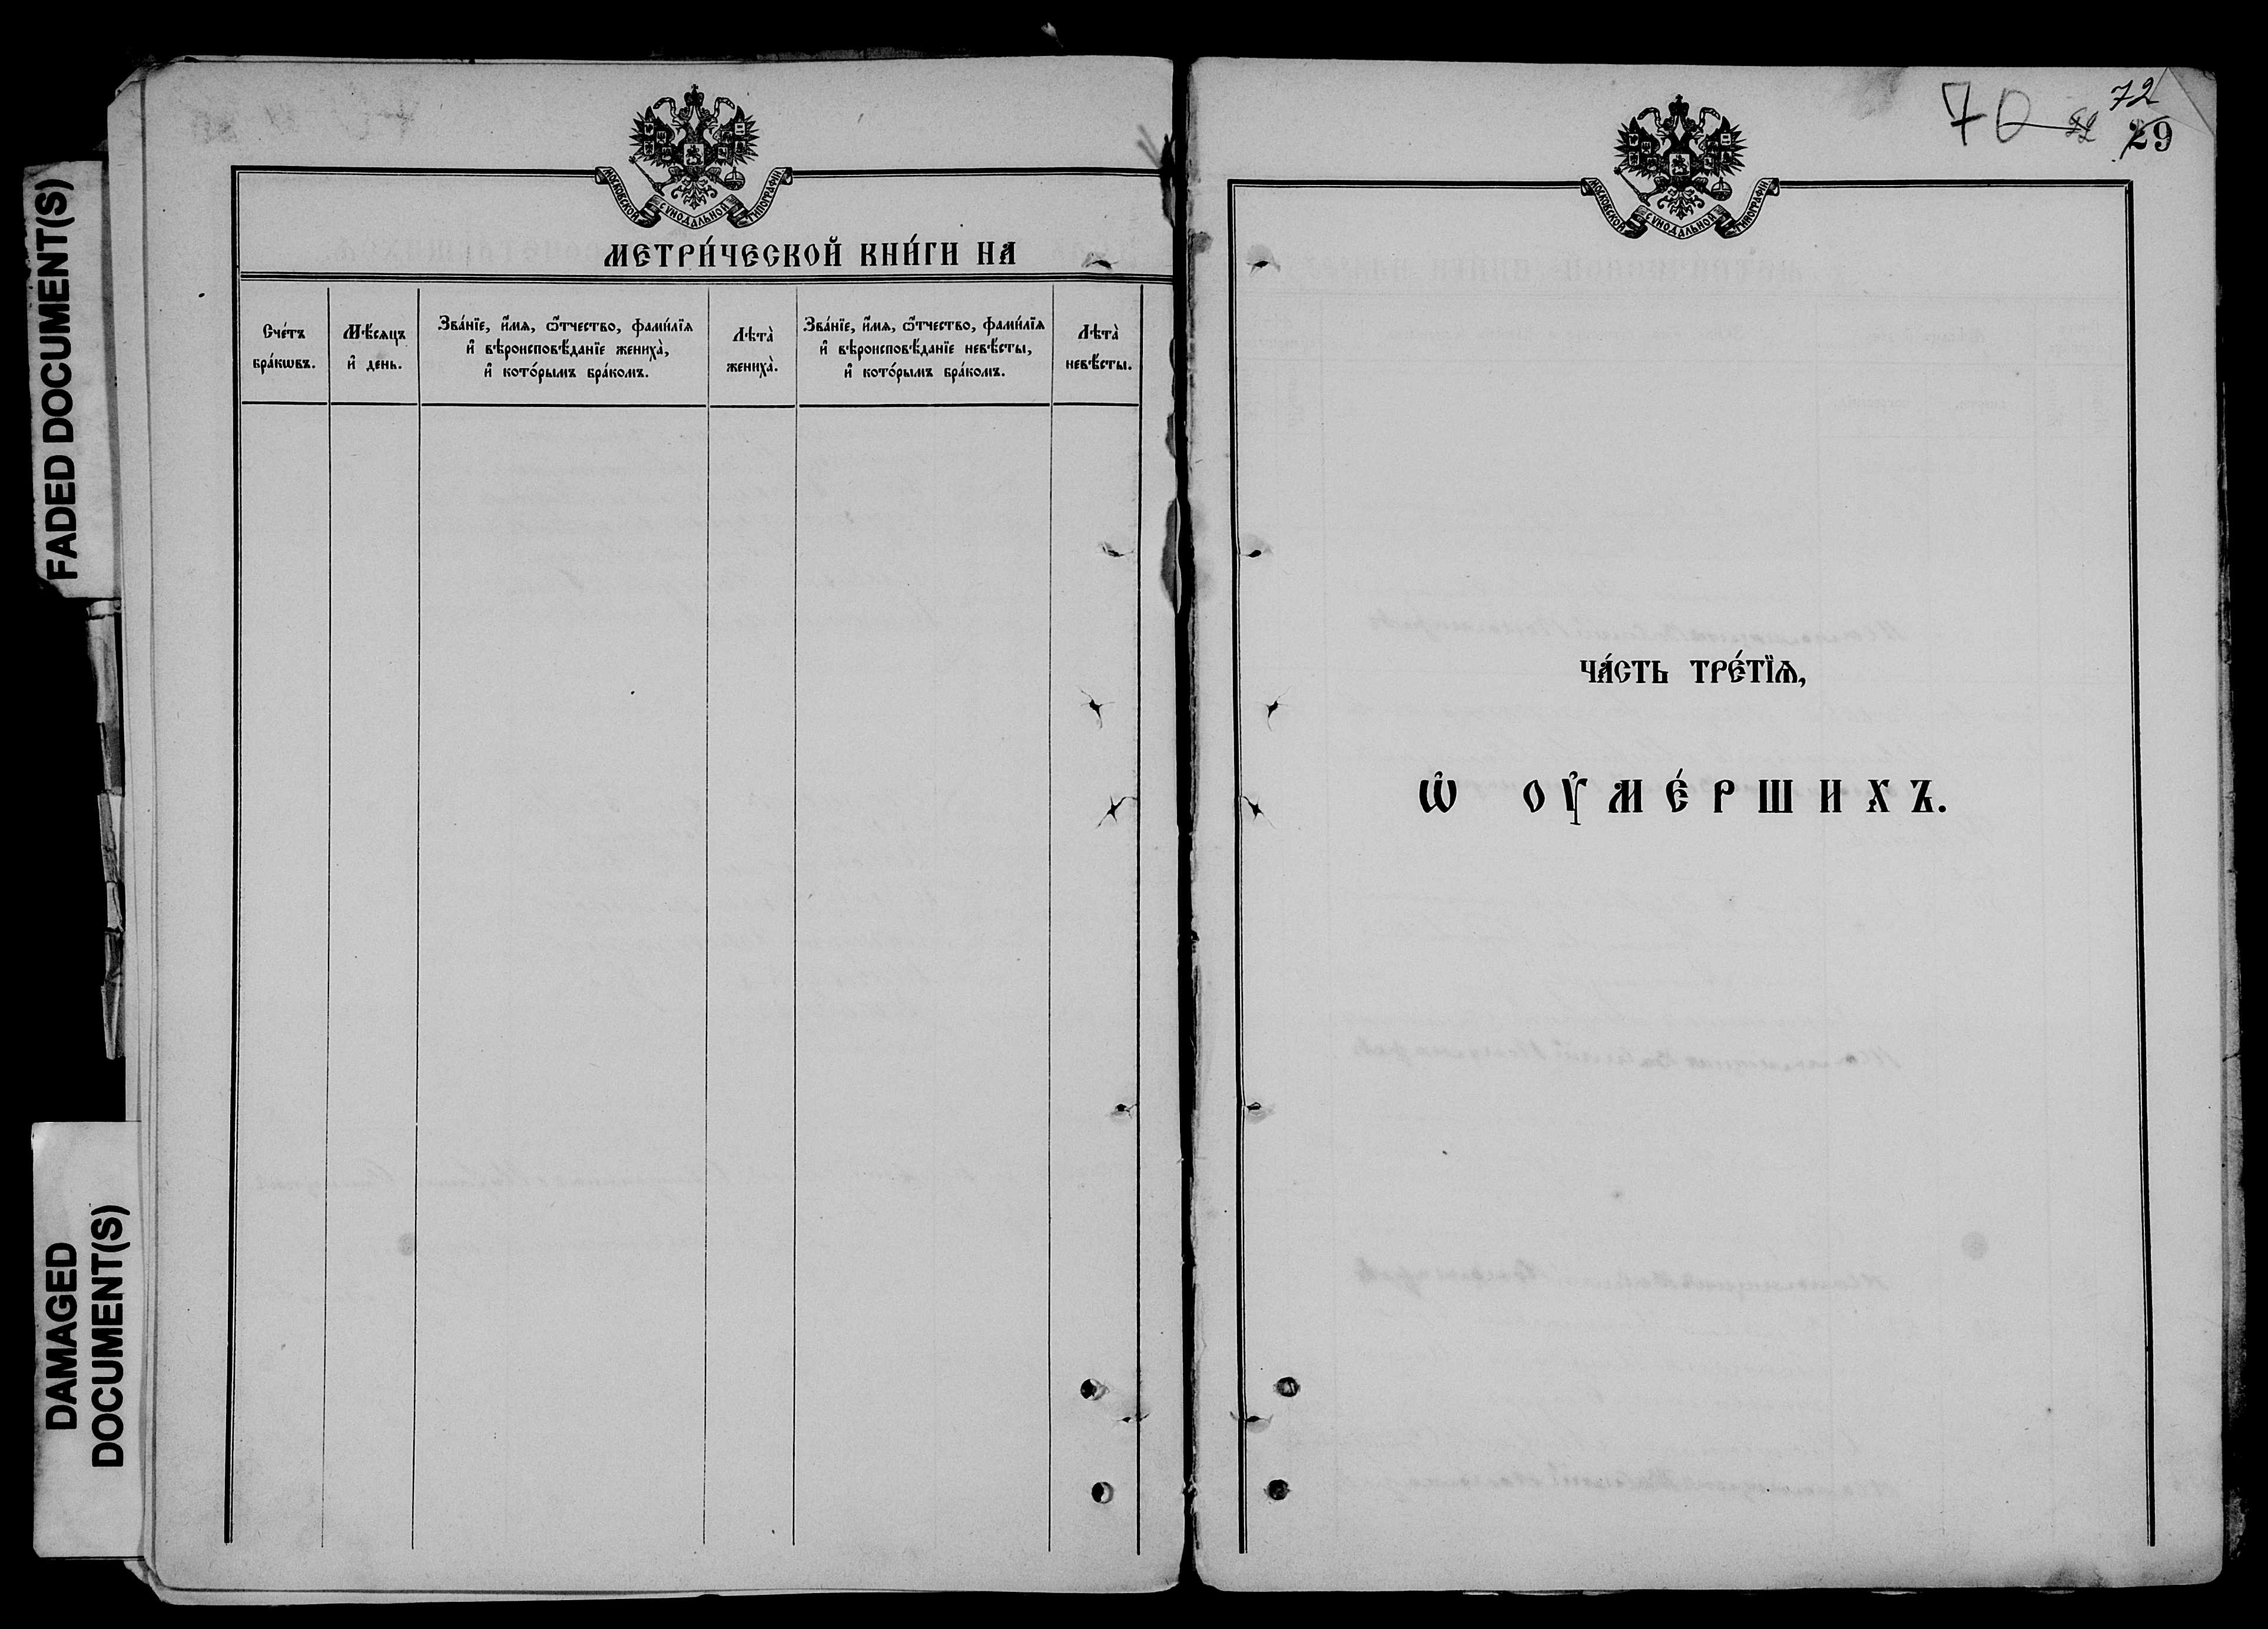 FADED DOCUMENT(S)
DAMAGED
DOCUMENT(S)
МОСКОВСКОЙ СѴНОДАЛЬНОЙ ТИПОГРАФІИ
МЕТРИ́ЧЕСКОЙ КНИ́ГИ НА
Сче́тъ
бра́кѡвъ.
Мѣ́сяцъ
и҆ день.
Зва́нїе, и҆́мя, ѻ҆́тчество, фами́лїя
и҆ вѣроисповѣ́данїе жениха̀,
и҆ кото́рымъ бра́комъ.
Лѣта̀
жениха̀.
Зва́нїе, и҆́мя, ѻ҆́тчество, фами́лїя
и҆ вѣроисповѣ́данїе невѣ́сты,
и҆ кото́рымъ бра́комъ.
Лѣта̀
невѣ́сты.
70
72
29
МОСКОВСКОЙ СѴНОДАЛЬНОЙ ТИПОГРАФІИ
ЧА́СТЬ ТРЕ́ТЇѦ,
Ѡ҆ ОУ҆МЕ́РШИХЪ.